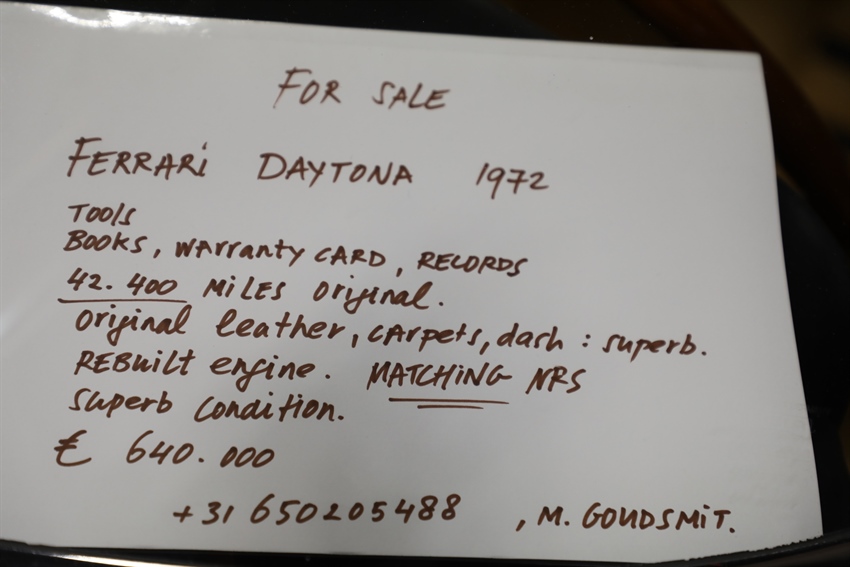 FOR SALE
FERRARi DAYTONA 1972
Tools
BOOKS, WArranty CARD, RECORDS
42.400 MiLES Original.
Original leather, CArpets, dash : superb.
REBuilt engine. MATCHiNG NRS
SuperB Condition.
€ 640.000
+31 650205488 , M. GOUDSMiT.